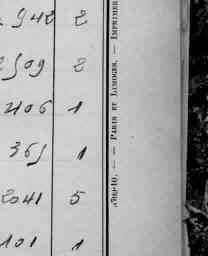 942 2
2509 2
2106 1
365 1
2041 5
101 1
PARIS ET LIMOGES. — IMPRIMER